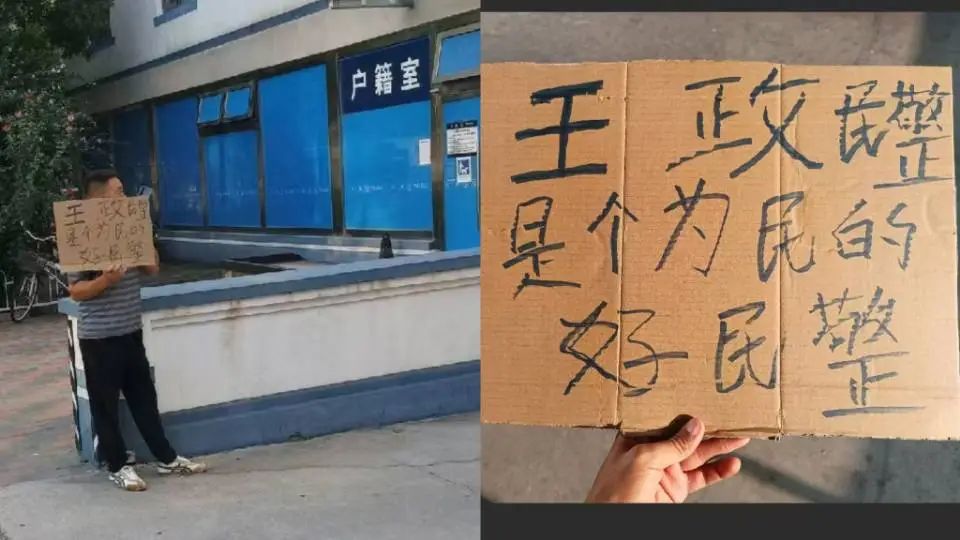 户籍室
王 政民警
是个为民的
好民警
王 政民警
是个为民的
好民警